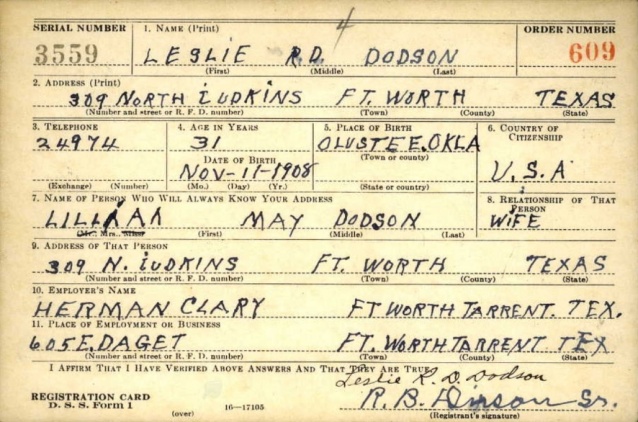 4
SERIAL NUMBER 1. NAME (Print) ORDER NUMBER
3559 LESLIE R.D. DODSON 609
(First) (Middle) (Last)
2. ADDRESS (Print)
309 NORTH LUDKINS FT. WORTH TEXAS
(Number and street or R. F. D. number) (Town) (County) (State)
3. TELEPHONE 4. AGE IN YEARS 5. PLACE OF BIRTH 6. COUNTRY OF CITIZENSHIP
24974 31 OLUSTEE.OKLA
DATE OF BIRTH (Town or county)
NOV-11-1908 U.S.A
(Exchange) (Number) (Mo.) (Day) (Yr.) (State or county)
7. NAME OF PERSON WHO WILL ALWAYS KNOW YOUR ADDRESS 8. RELATIONSHIP OF THAT PERSON
LILLIAN MAY DODSON WIFE
(Mr. Mrs. Miss) (First) (Middle) (Last)
9. ADDRESS OF THAT PERSON
309 N. LUDKINS FT. WORTH TEXAS
(Number and street or R. F. D. number) (Town) (County) (State)
10. EMPLOYER'S NAME
HERMAN CLARY FT WORTH TARRENT. TEX.
11. PLACE OF EMPLOYMENT OR BUSINESS
605 E. DAGET FT. WORTH TARRENT TEX
(Number and street or R. F. D. number) (Town) (County) (State)
I AFFIRM THAT I HAVE VERIFIED ABOVE ANSWERS AND THAT THEY ARE TRUE.
Leslie R. D. Dodson
REGISTRATION CARD R. B. Sr.
D. S. S. Form 1 (over) 16—17105 (Registrant's signature)